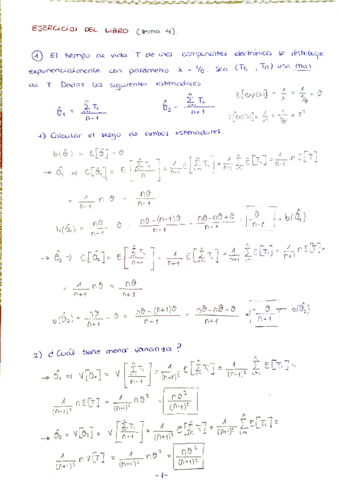 EJERCICIOS DEL LIBRO (tema 4).
① El tiempo de vida T de unos componentes electrónicos se distribuye
exponencialmente con parámetro λ = 1/θ. Sea (T₁, Tₙ) una mas
de T. Dados los siguientes estimadores
θ̂₁ = Σ Tᵢ / n-1    θ̂₂ = Σ Tᵢ / n+1    E[exp(λ)] = 1/λ = 1/(1/θ) = θ
1) Calcular el sesgo de ambos estimadores.
b(θ̂) = E[θ̂] - θ
→ θ̂₁ ⇒ E[θ̂₁] = E[Σ Tᵢ / n-1] = 1/n-1 E[Σ Tᵢ] = 1/n-1 Σ E[Tᵢ] = 1/n-1 n E[T]
= 1/n-1 n θ = nθ/n-1
b(θ̂₁) = nθ/n-1 - θ = nθ-(n-1)θ / n-1 = nθ-nθ+θ / n-1 = θ/n-1 → b(θ̂₁)
→ θ̂₂ ⇒ E[θ̂₂] = E[Σ Tᵢ / n+1] = 1/n+1 E[Σ Tᵢ] = 1/n+1 Σ E[Tᵢ] = 1/n+1 n E[T] =
= 1/n+1 n θ = nθ/n+1
b(θ̂₂) = nθ/n+1 - θ = nθ-(n+1)θ / n+1 = nθ-nθ-θ / n+1 = -θ/n+1 → b(θ̂₂)
2) ¿Cuál tiene menor varianza?
→ θ̂₁ ⇒ V[θ̂₁] = V[Σ Tᵢ / n-1] = 1/(n-1)² [Σ Tᵢ] = 1/(n-1)² Σ [Tᵢ] =
1/(n-1)² n [T] = 1/(n-1)² n θ² = nθ²/(n-1)²
→ θ̂₂ = V[θ̂₂] = V[Σ Tᵢ / n+1] = 1/(n+1)² [Σ Tᵢ] = 1/(n+1)² Σ [Tᵢ] =
1/(n+1)² n V[T] = 1/(n+1)² n θ² = nθ²/(n+1)²
-1-